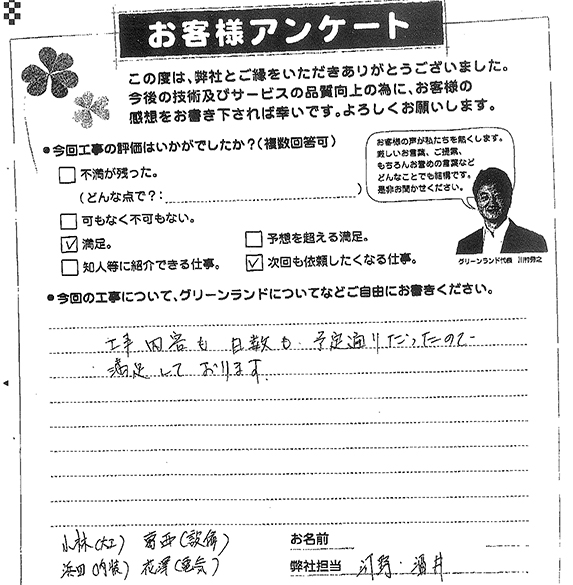 お客様アンケート
この度は、弊社とご縁をいただきありがとうございました。
今後の技術及びサービスの品質向上の為に、お客様の
感想をお書き下されば幸いです。よろしくお願いします。
●今回工事の評価はいかがでしたか?(複数回答可)
不満が残った。
(どんな点で?: )
可もなく不可もない。
満足。
予想を超える満足。
知人等に紹介できる仕事。
次回も依頼したくなる仕事。
お客様の声が私たちを熱くします。
厳しいお言葉、ご提案、
もちろんお誉めの言葉など
どんなことでも結構です。
是非お聞かせください。
グリーンランド代表
●今回の工事について、グリーンランドについてなどご自由にお書きください。
工事内容も日数も予定通りだったので
満足しております。
小林(大工) 葛西(設備)
浜田(内装) 花澤(電気)
お名前
弊社担当 河野・酒井